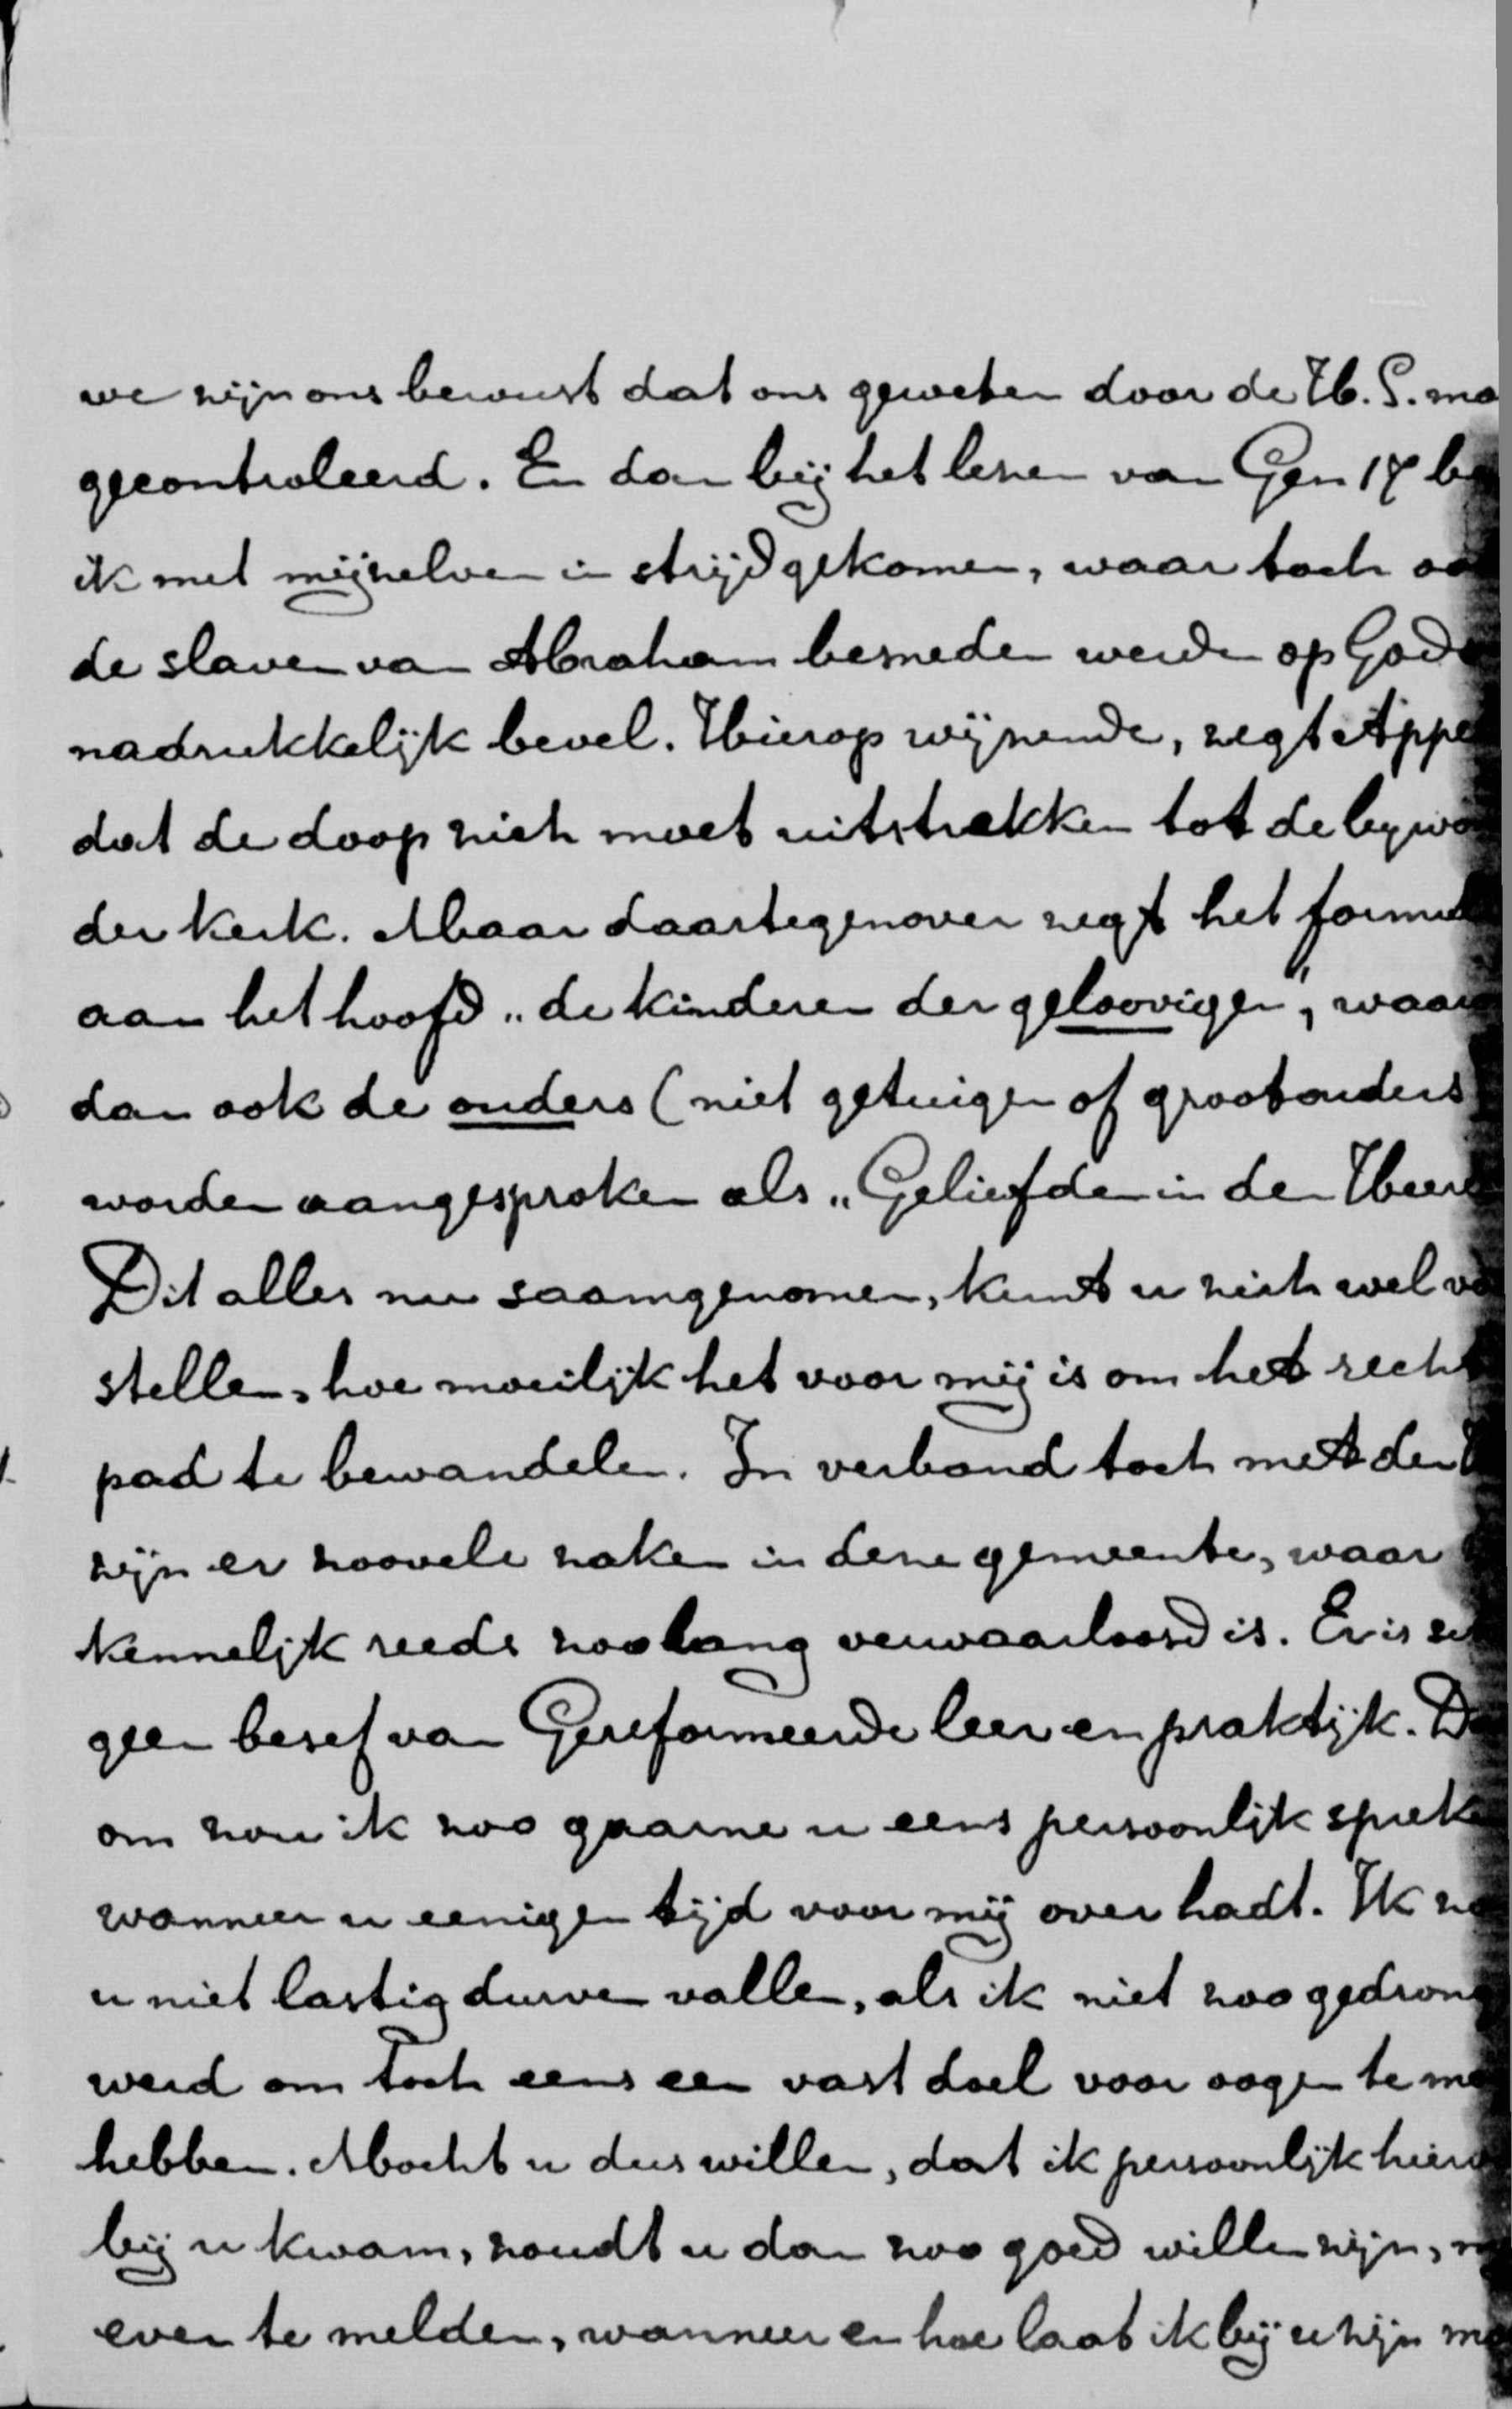 we zijn ons bewust dat ons geweten door de H. S. mo
gecontroleerd. En dan bij het lezen van Gen 17 be
ik met mijzelven in strijd gekomen, waar toch oo
de slaven van Abraham besneden werden op Gods
nadrukkelijk bevel. Hierop wijzende, zegt Appe
dat de doop zich moet uitstrekken tot de bijwo
der kerk. Maar daartegenover zegt het formul
aan het hoofd „de kinderen der geloovigen", waar
dan ook de ouders (niet getuigen of grootouders
worden aangesproken als „Geliefden in den Heere
Dit alles nu saamgenomen, kunt u zich wel vo
stellen, hoe moeilijk het voor mij is om het recht
pad te bewandelen. In verband toch met den
zijn er zoovele zaken in deze gemeente, waar
kennelijk reeds zoolang verwaarloosd is. Er is
geen besef van Gereformeerde leer en praktijk. D
om zou ik zoo gaarne u eens persoonlijk sprek
wanneer u eenigen tijd voor mij over hadt. Ik zo
u niet lastig durven vallen, als ik niet zoo gedrong
werd om toch eens een vast doel voor oogen te mo
hebben. Mocht u dus willen, dat ik persoonlijk hiero
bij u kwam, zoudt u dan zoo goed willen zijn, m
even te melden, wanneer en hoe laat ik bij u zijn mo